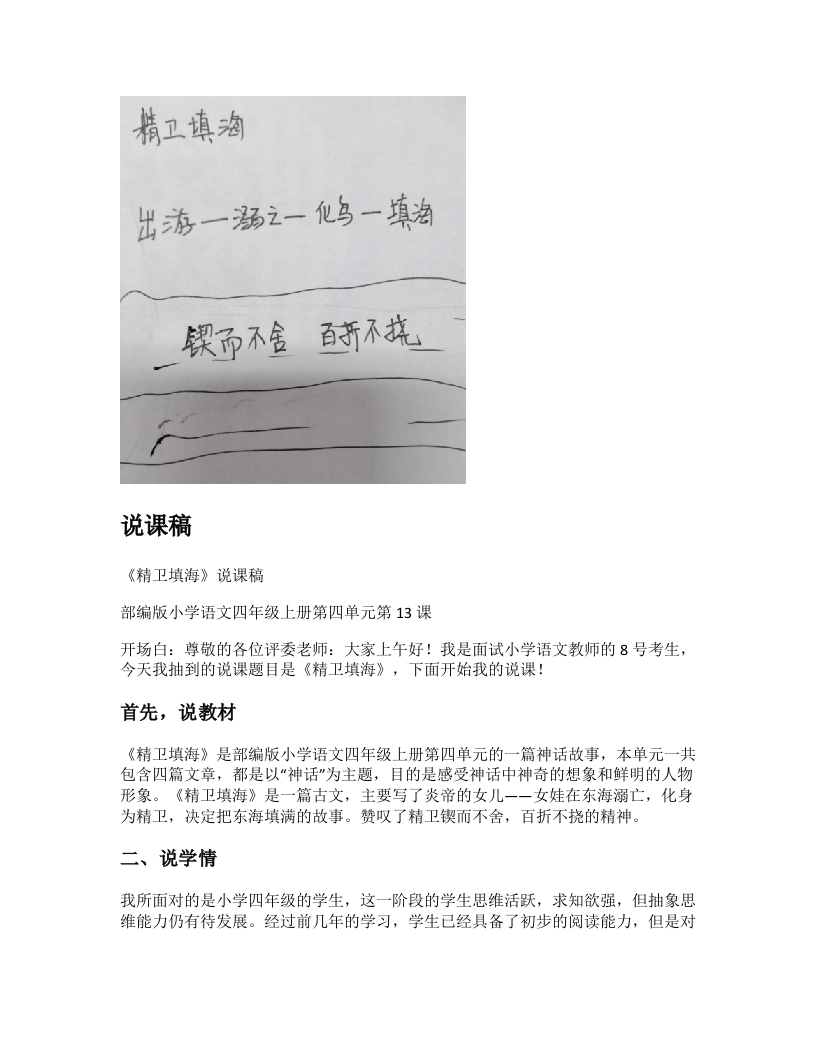 精卫填海
出游一溺之一化鸟一填海
锲而不舍 百折不挠
说课稿
《精卫填海》说课稿
部编版小学语文四年级上册第四单元第 13 课
开场白：尊敬的各位评委老师：大家上午好！我是面试小学语文教师的 8 号考生，
今天我抽到的说课题目是《精卫填海》，下面开始我的说课！
首先，说教材
《精卫填海》是部编版小学语文四年级上册第四单元的一篇神话故事，本单元一共
包含四篇文章，都是以“神话”为主题，目的是感受神话中神奇的想象和鲜明的人物
形象。《精卫填海》是一篇古文，主要写了炎帝的女儿——女娃在东海溺亡，化身
为精卫，决定把东海填满的故事。赞叹了精卫锲而不舍，百折不挠的精神。
二、说学情
我所面对的是小学四年级的学生，这一阶段的学生思维活跃，求知欲强，但抽象思
维能力仍有待发展。经过前几年的学习，学生已经具备了初步的阅读能力，但是对